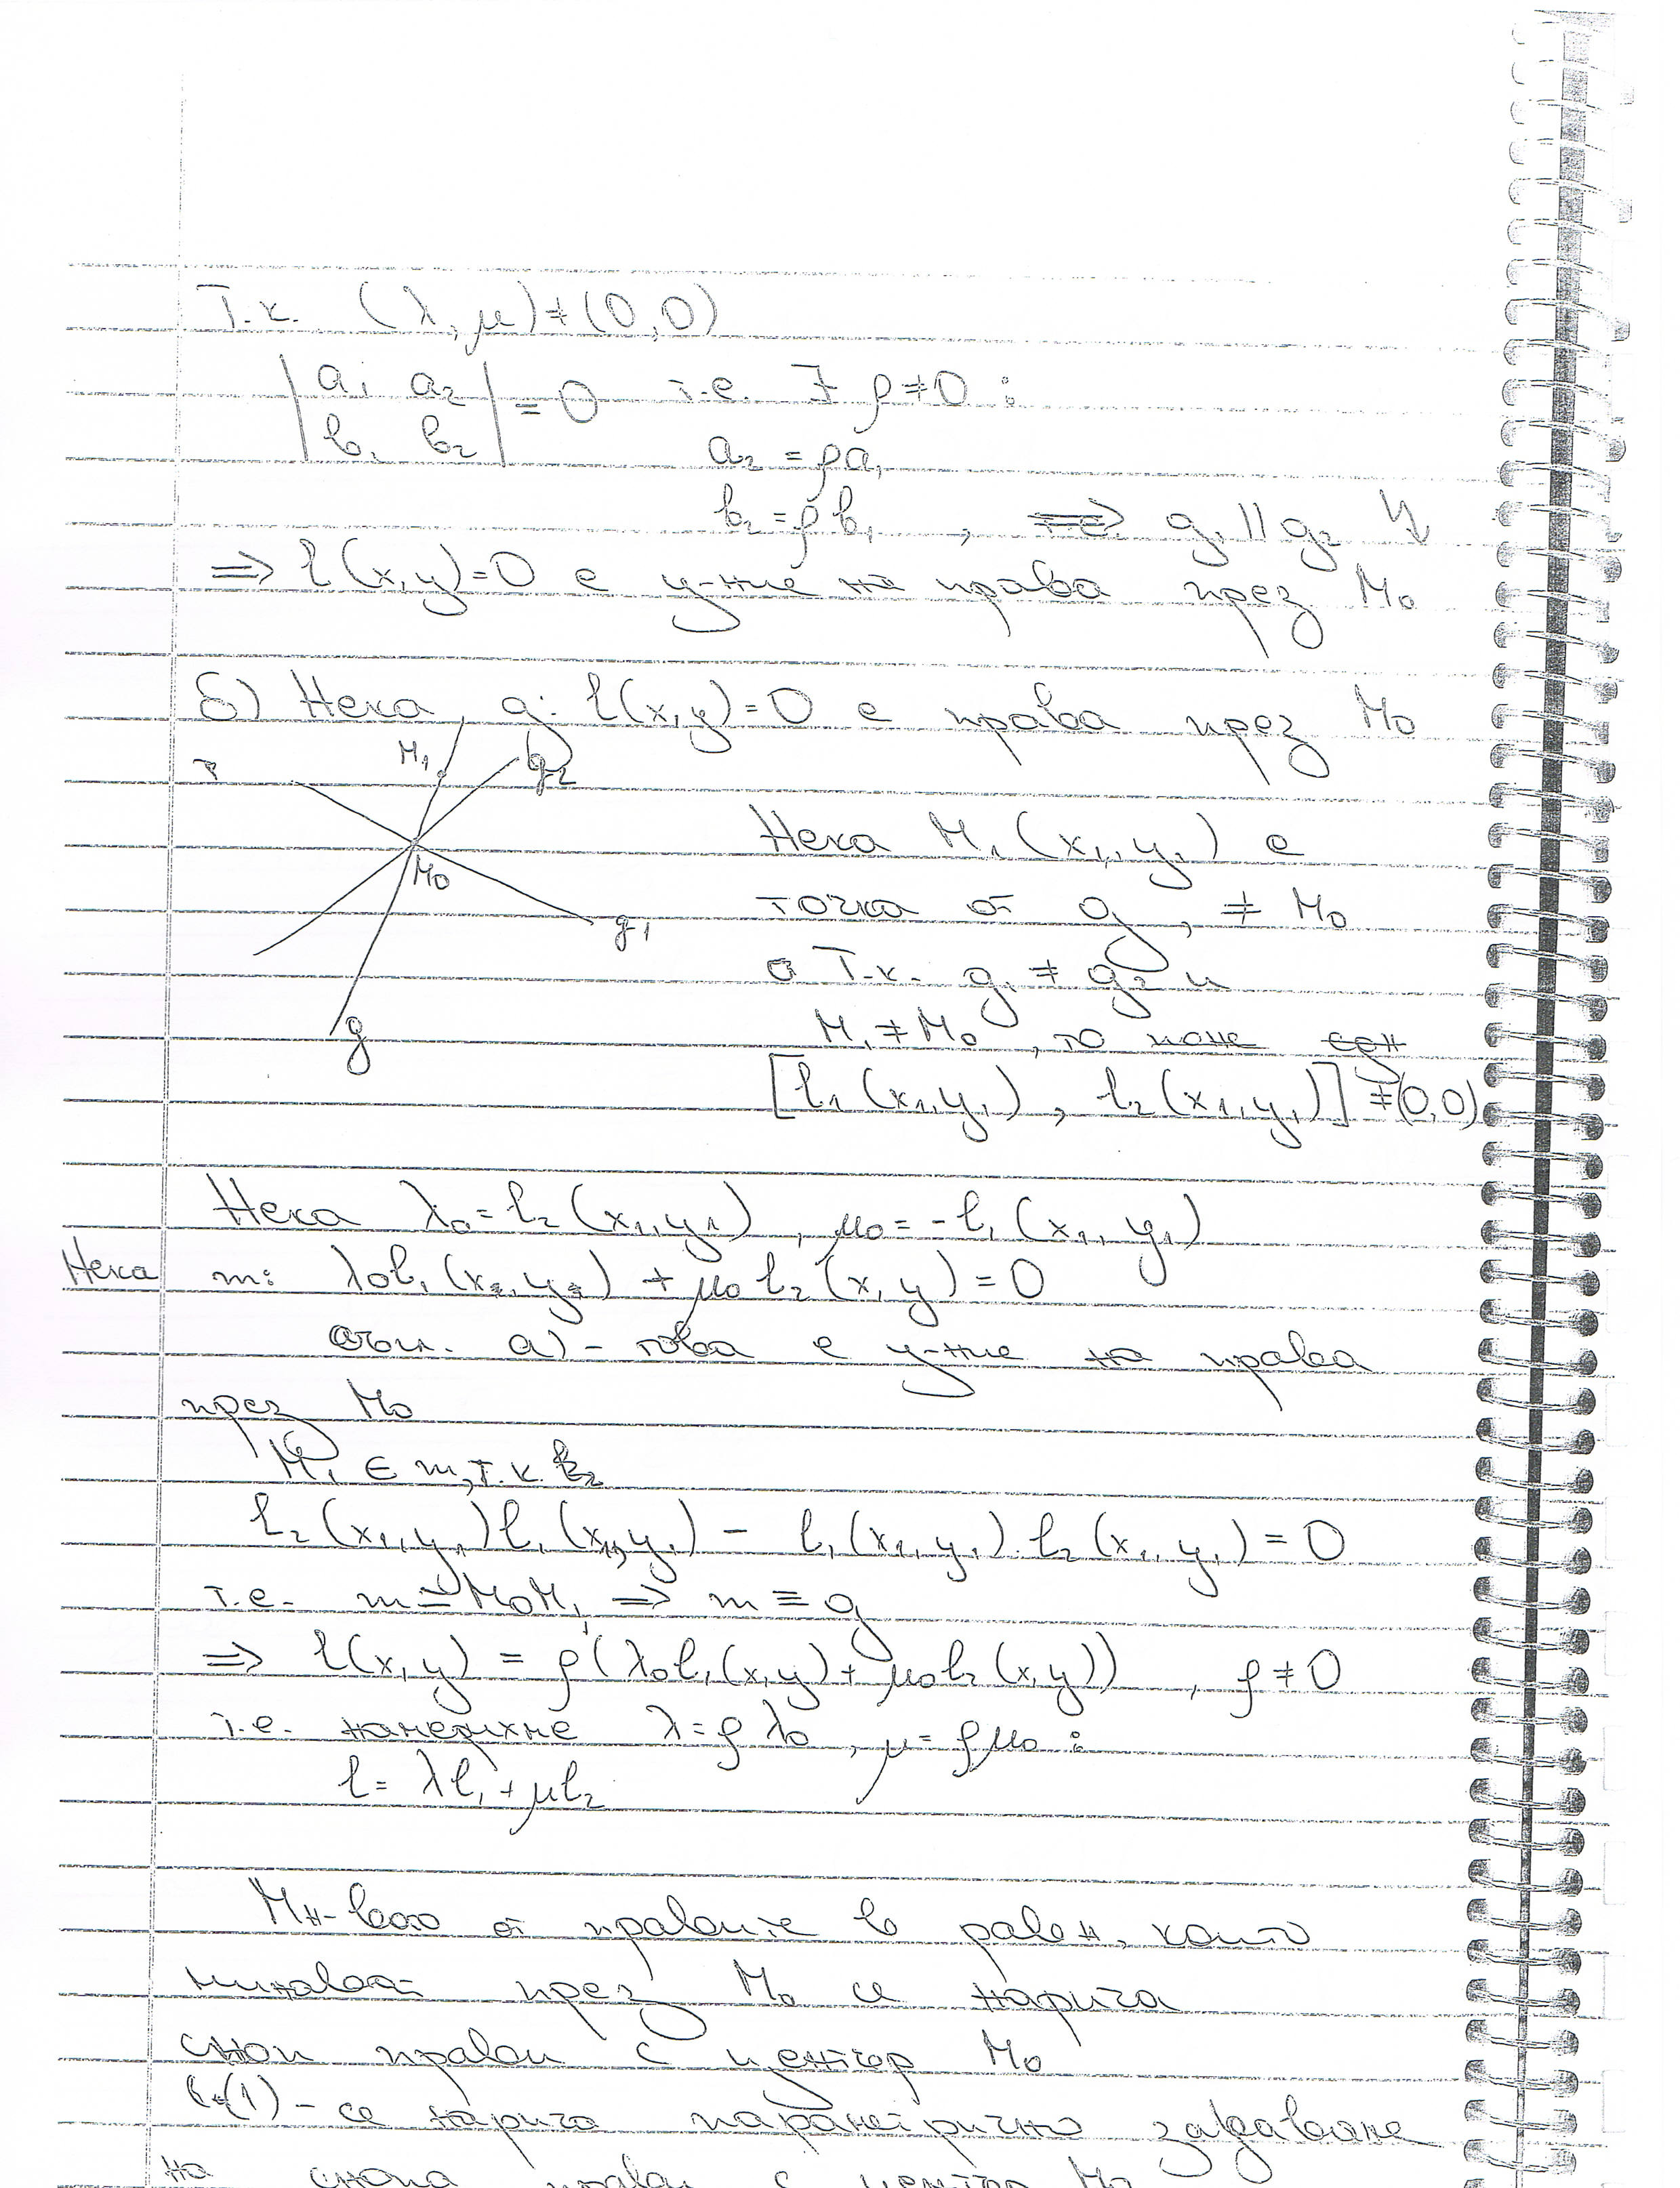 Т.к. (λ, μ) ≠ (0,0)
| a₁ a₂ |
| b₁ b₂ | = 0 т.е. ∃ ρ≠0 :
a₂ = ρa₁
b₂ = ρb₁ , => g₁ || g₂ ↯
=> l(x,y)=0 е у-ние на права през M₀
б) Нека g: l(x,y)=0 е права през M₀
M₁ g₂
Нека M₁(x₁,y₁) е
M₀
точка от g, ≠ M₀
g₁
Т.к. g₁ ≠ g₂ и
g
M₁ ≠ M₀, то поне едн
[l₁(x₁,y₁), l₂(x₁,y₁)] ≠ (0,0)
Нека λ₀ = l₂(x₁,y₁), μ₀ = -l₁(x₁,y₁)
Нека m: λ₀l₁(x,y) + μ₀l₂(x,y) = 0
a) - това е у-ние на права
през M₀
M₁ ∈ m, т.к.
l₂(x₁,y₁)l₁(x₁,y₁) - l₁(x₁,y₁).l₂(x₁,y₁) = 0
т.е. m = M₀M₁ => m ≡ g
=> l(x,y) = ρ(λ₀l₁(x,y) + μ₀l₂(x,y)) , ρ ≠ 0
т.е. намерихме λ = ρλ₀, μ = ρμ₀ :
l = λl₁ + μl₂
Мн-вото от правите в равн. които
минават през M₀ се нарича
сноп прави с център M₀
(1) - се нарича параметрично задаване
на снопа прави с център M₀